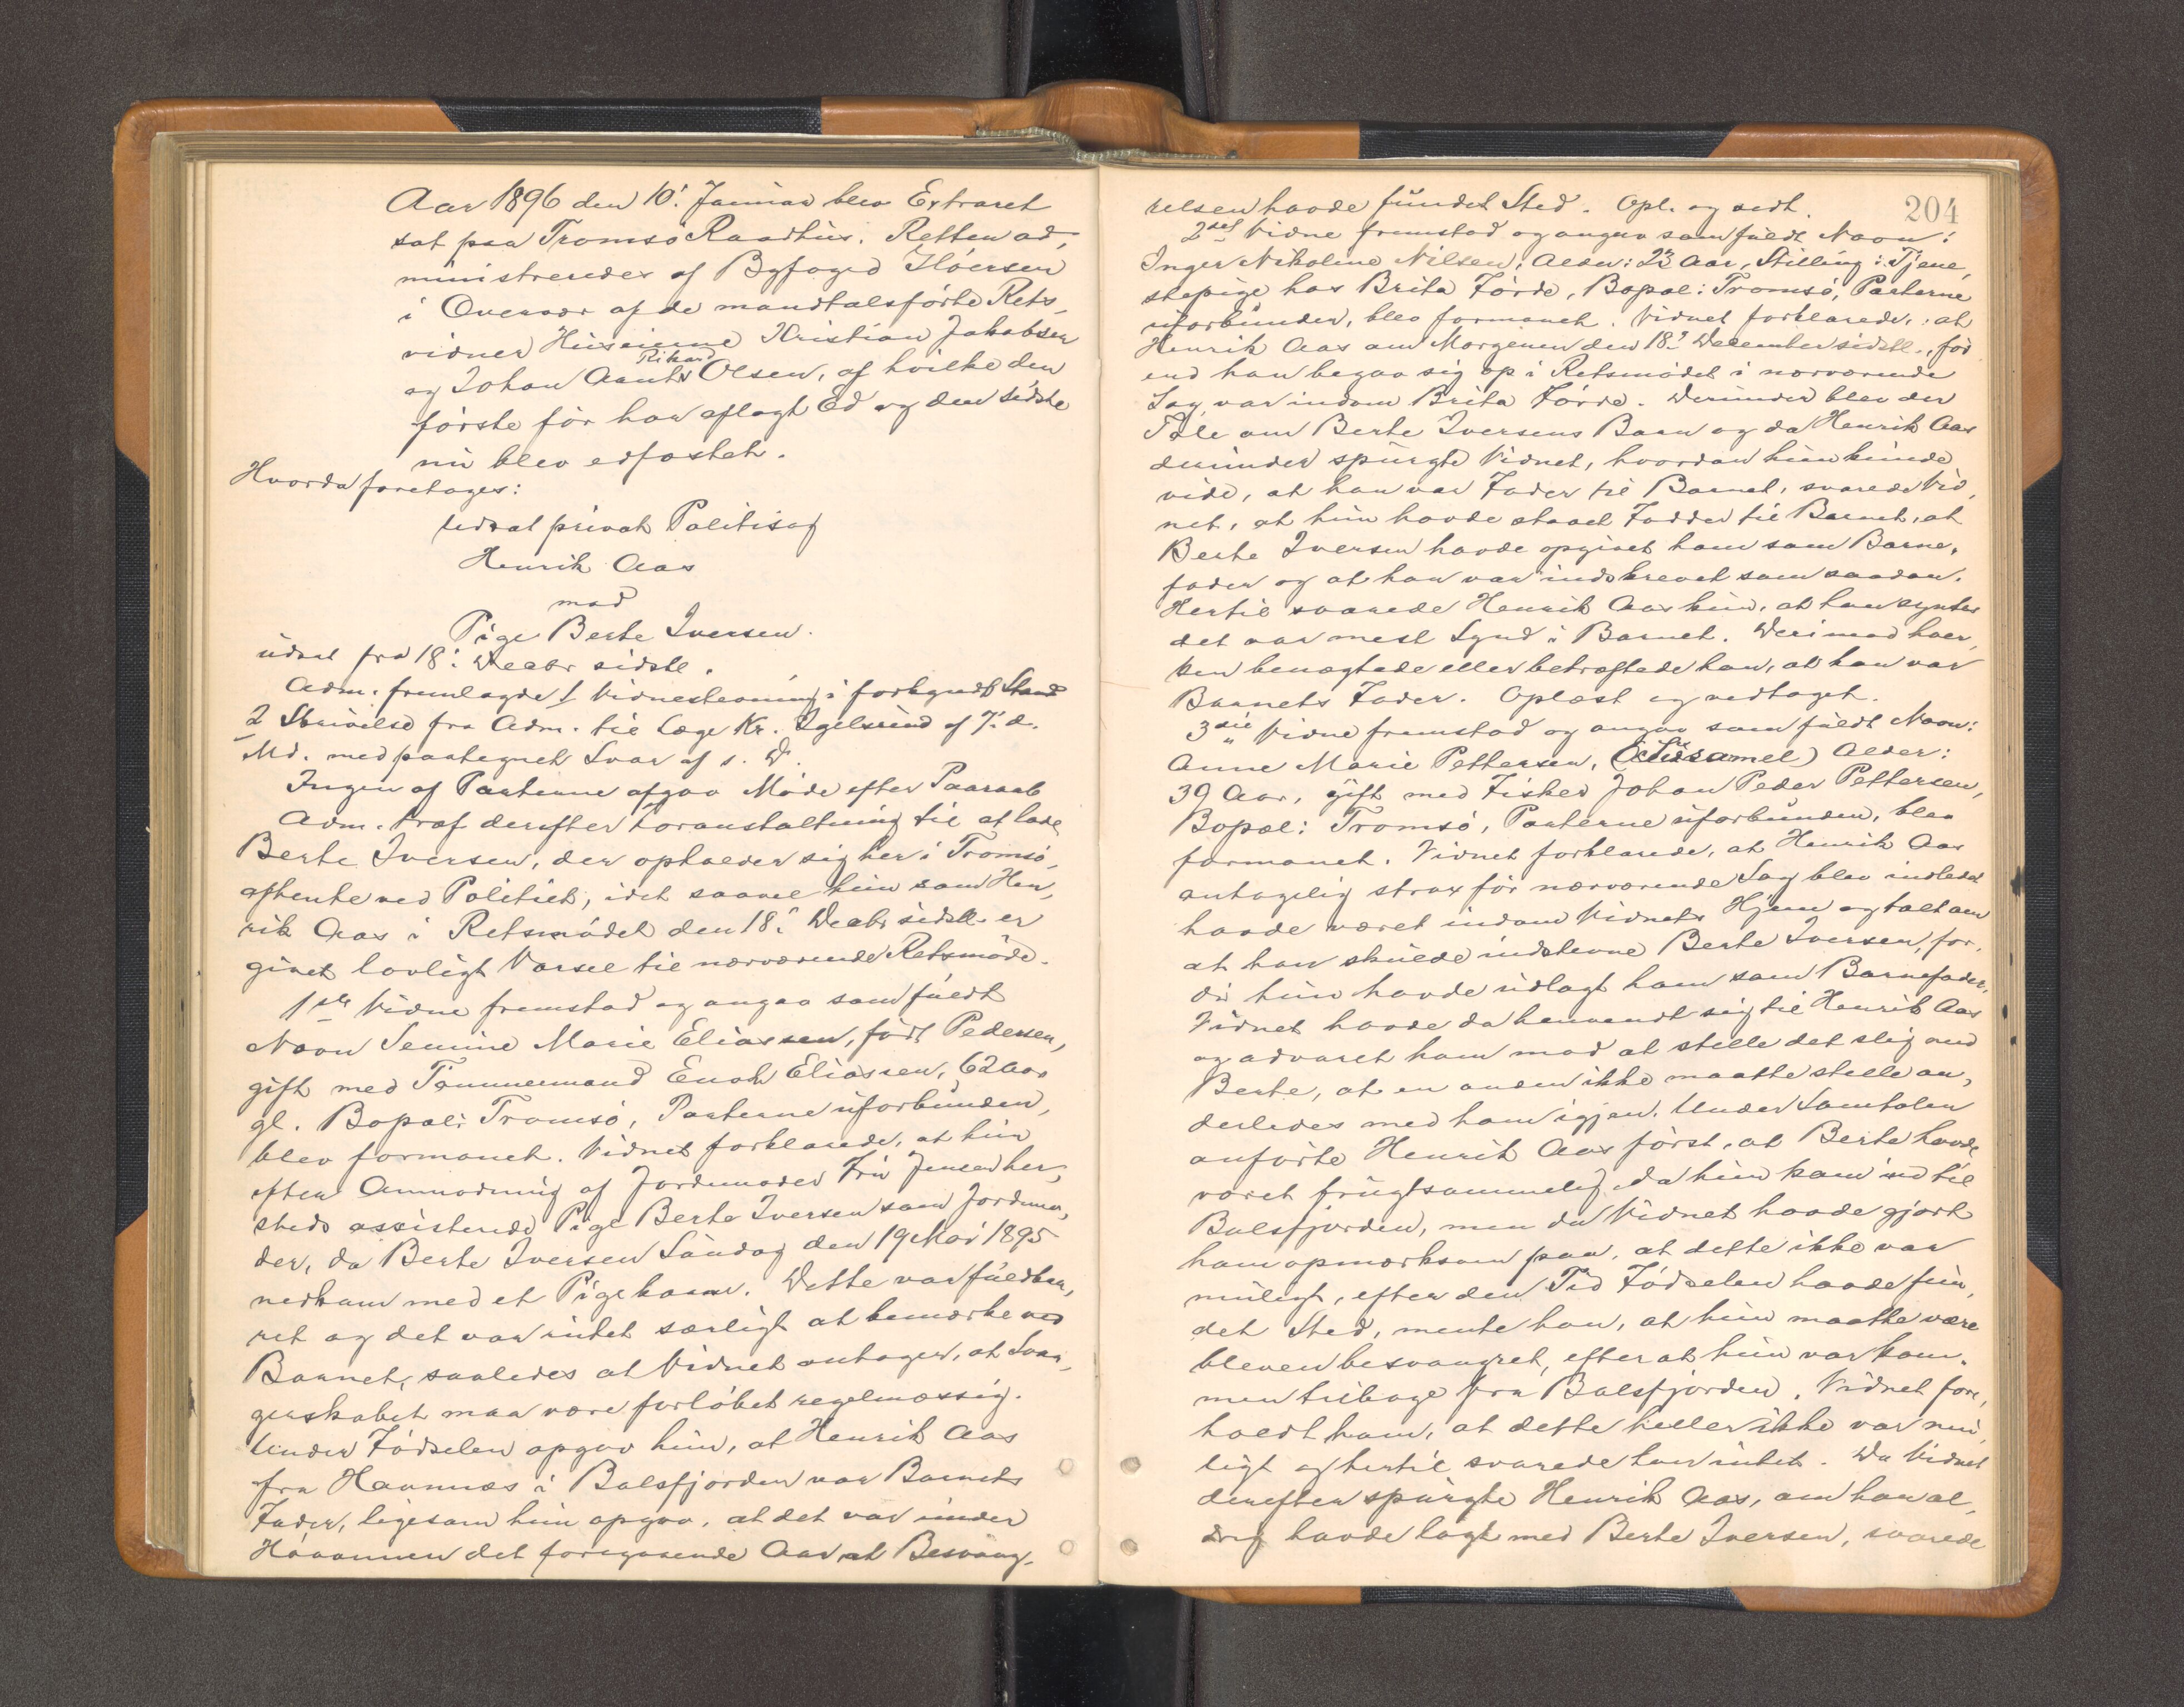 Aar 1896 den 10: Januar blev Extraret
sat paa Tromsø Raadhus. Retten ad-
ministreredes af Byfoged
i Overvær af de mandtalsførte Rets-
vidner Huseierne Kristian Jakobsen
og Johan Rikard Olsen, af hvilke den
første før har aflagt Ed og den sidste
nu blev edfæstet.
Hvorda foretoges:
Udsat privat Politisag
Henrik Aas
mod
Pige Berte Iversen.
udsat fra 18: Decbr sidstl.
Adm. fremlagde 1 Vidnestevning i forkyndt Stand
2 Skrivelse fra Adm. til Læge Kr. Igelsrud af 7: d.
Md. med paategnet Svar af s. D.
Ingen af Parterne afgav Møde efter Paaraab
Adm. traf derefter Foranstaltning til at lade
Berte Iversen, der opholder sig her i Tromsø,
afhente ved Politiet, idet saavel hun som Hen-
rik Aas i Retsmødet den 18: Decbr sidstl. er
givet lovligt Varsel til nærværende Retsmøde.
1ste Vidne fremstod og angav som fuldt
Navn Semine Marie Eliassen, født Pedersen,
gift med Tømmermand Enok Eliassen, 62 Aar
gl. Bopæl: Tromsø, Parterne uforbunden,
blev formanet. Vidnet forklarede, at hun
efter Anmodning af Jordemoder Fru Jensen her-
steds assisterede Pige Berte Iversen som Jordemo-
der, da Berte Iversen Søndag den 19 Mai 1895
nedkom med et Pigebarn. Dette var fuldbaa-
ret og det var intet særligt at bemærke ved
Barnet, saaledes at Vidnet antager, at Svan-
gerskabet maa være forløbet regelmæssig.
Under Fødselen opgav hun, at Henrik Aas
fra Havnnæs i Balsfjorden var Barnets
Fader, ligesom hun opgav, at det var under
Haaonnen det foregaaende Aar at Besvang-
204
relsen havde fundet Sted. Opl. og vedt.
2det Vidne fremstod og angav som fuldt Navn:
Inger Nikoline Nilsen, Alder: 23 Aar, Stilling: Tjene-
stepige hos Brita Førde, Bopæl: Tromsø, Parterne
uforbunden, blev formanet. Vidnet forklarede, at
Henrik Aas om Morgenen den 18: December sidstl., før
end han begav sig op i Retsmødet i nærværende
Sag, var indom Brita Førde. Derunder blev der
Tale om Berte Iversens Barn og da Henrik Aas
derunder spurgte Vidnet, hvordan hun kunde
vide, at han var Fader til Barnet, svarede Vid-
net, at hun havde staaet Fadder til Barnet, at
Berte Iversen havde opgivet ham som Barne-
fader og at han var indskrevet som saadan.
Hertil svarede Henrik Aas kun, at han syntes
det var mest Synd i Barnet. Derimod hver-
ken benægtede eller bekræftede han, at han var
Barnets Fader. Oplæst og vedtaget.
3die Vidne fremstod og angav som fuldt Navn:
Anne Marie Pettersen, Alder:
39 Aar, gift med Fisker Johan Peder Pettersen,
Bopæl: Tromsø, Parterne uforbunden, blev
formanet. Vidnet forklarede, at Henrik Aas
antagelig strax før nærværende Sag blev indledet
havde været indom Vidnets Hjem og talt om
at han skulde indstevne Berte Iversen, for-
di hun havde udlagt ham som Barnefader.
Vidnet havde da henvendt sig til Henrik Aas
og advaret ham mod at stelle det slig med
Berte, at en anden ikke maatte stelle an-
derledes med ham igjen. Under Samtalen
anførte Henrik Aas først, at Berte havde
været frugtsommelig, da hun kom ind til
Balsfjorden, men da Vidnet havde gjort
ham opmærksom paa, at dette ikke var
muligt, efter den Tid Fødselen havde fun-
det Sted, mente han, at hun maatte være
bleven besvangret, efter at hun var kom-
men tilbage fra Balsfjorden. Vidnet fore-
holdt ham, at dette heller ikke var mu-
ligt og hertil svarede han intet. Da Vidnet
derefter spurgte Henrik Aas, om han al-
drig havde lagt med Berte Iversen, svarede